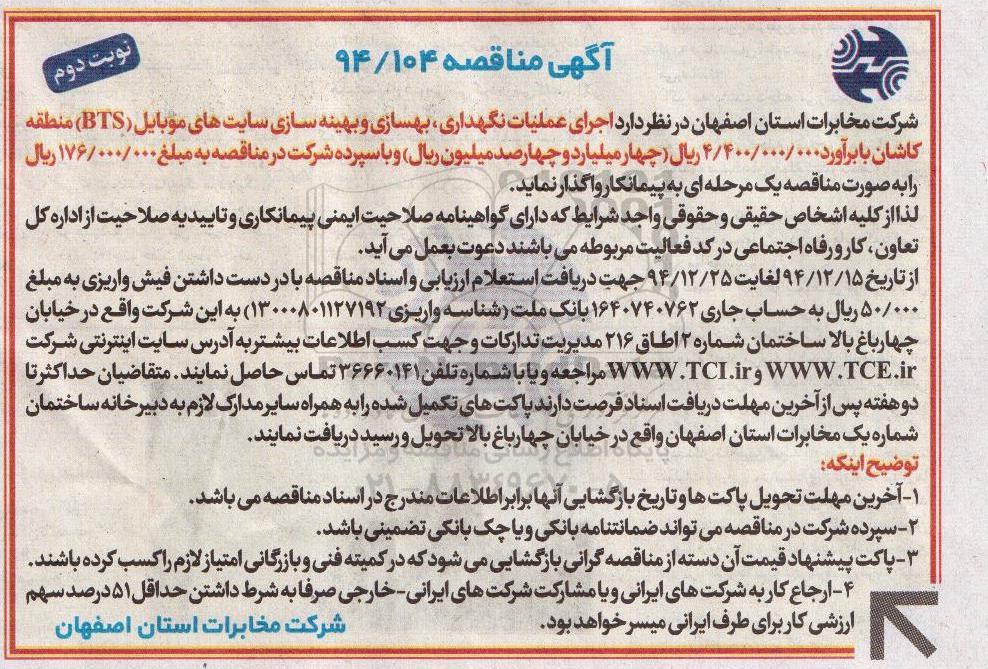 آگهی مناقصه ۹۴/۱۰۴
نوبت دوم
شرکت مخابرات استان اصفهان در نظر دارد اجرای عملیات نگهداری، بهسازی و بهینه سازی سایت های موبایل (BTS) منطقه
کاشان با برآورد ۴/۴۰۰/۰۰۰/۰۰۰ ریال (چهار میلیارد و چهارصد میلیون ریال) و با سپرده شرکت در مناقصه به مبلغ ۱۷۶/۰۰۰/۰۰۰ ریال
را به صورت مناقصه یک مرحله ای به پیمانکار واگذار نماید.
لذا از کلیه اشخاص حقیقی و حقوقی واجد شرایط که دارای گواهینامه صلاحیت ایمنی پیمانکاری و تاییدیه صلاحیت از اداره کل
تعاون، کار و رفاه اجتماعی در کد فعالیت مربوطه می باشند دعوت بعمل می آید.
از تاریخ ۹۴/۱۲/۱۵ لغایت ۹۴/۱۲/۲۵ جهت دریافت استعلام ارزیابی و اسناد مناقصه با در دست داشتن فیش واریزی به مبلغ
۵۰/۰۰۰ ریال به حساب جاری ۱۶۴۰۷۴۰۷۶۲ بانک ملت (شناسه واریزی ۱۳۰۰۰۸۰۱۱۲۷۱۹۲) به این شرکت واقع در خیابان
چهارباغ بالا ساختمان شماره ۲ اطاق ۲۱۶ مدیریت تدارکات و جهت کسب اطلاعات بیشتر به آدرس سایت اینترنتی شرکت
WWW.TCE.ir و WWW.TCI.ir مراجعه و یا با شماره تلفن ۳۶۶۶۰۱۴۱ تماس حاصل نمایند. متقاضیان حداکثر تا
دو هفته پس از آخرین مهلت دریافت اسناد فرصت دارند پاکت های تکمیل شده را به همراه سایر مدارک لازم به دبیرخانه ساختمان
شماره یک مخابرات استان اصفهان واقع در خیابان چهارباغ بالا تحویل و رسید دریافت نمایند.
توضیح اینکه:
۱-آخرین مهلت تحویل پاکت ها و تاریخ بازگشایی آنها برابر اطلاعات مندرج در اسناد مناقصه می باشد.
۲-سپرده شرکت در مناقصه می تواند ضمانتنامه بانکی و یا چک بانکی تضمینی باشد.
۳-پاکت پیشنهاد قیمت آن دسته از مناقصه گرانی بازگشایی می شود که در کمیته فنی و بازرگانی امتیاز لازم را کسب کرده باشند.
۴-ارجاع کار به شرکت های ایرانی و یا مشارکت شرکت های ایرانی-خارجی صرفا به شرط داشتن حداقل ۵۱ درصد سهم
ارزشی کار برای طرف ایرانی میسر خواهد بود.
شرکت مخابرات استان اصفهان
پایگاه اطلاع رسانی مناقصه و مزایده
۰۲۱-۸۸۳۴۹۶۷۰-۵